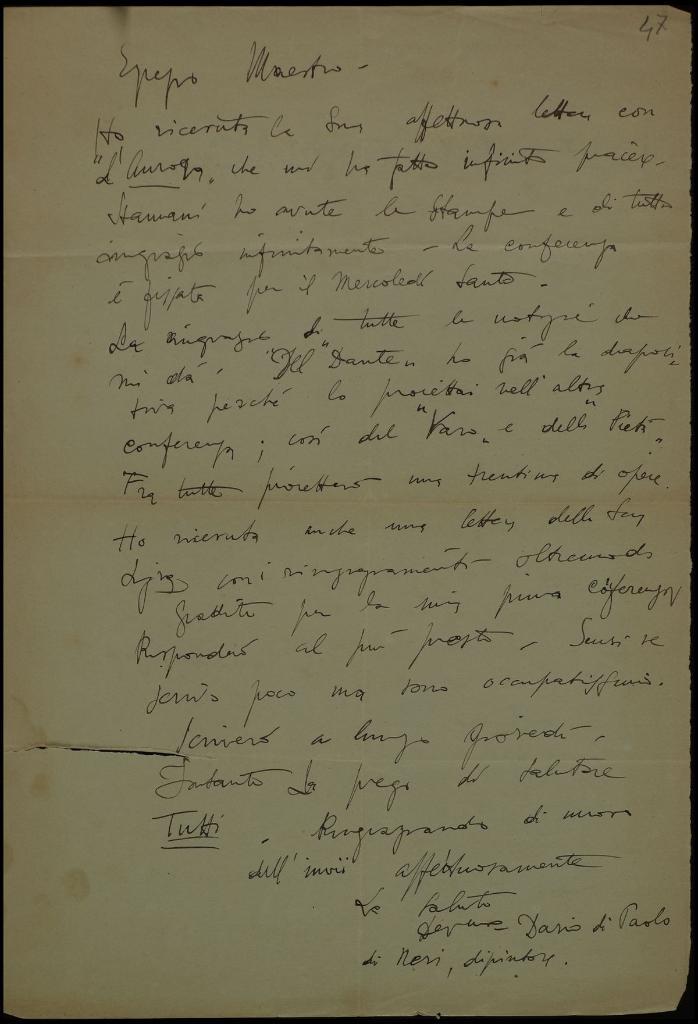 47
Egregio Maestro -
Ho ricevuta la Sua affettuosa lettera con
"L'Aurora" che mi ha fatto infinito piacere -
Stamani ho avute le stampe e di tutto
ringrazio infinitamente - La conferenza
è fissata per il Mercoledì Santo -
La ringrazio di tutte le notizie che
mi dà. "Del "Dante" ho già la diaposi-
tiva perché lo proiettai nell'altra
conferenza; così del "Varo" e della "Pietà"
Fra tutto proietterò una trentina di opere.
Ho ricevuta anche una lettera della Sua
con i ringraziamenti oltremodo
graditi per la mia prima conferenza
Risponderò al più presto - Scusi se
scrivo poco ma sono occupatissimo.
Scriverò a lungo giovedì -
Intanto La prego di salutare
Tutti - Ringraziando di nuovo
dell'invii affettuosamente
La saluto
Dario di Paolo
di Neri, dipintore.